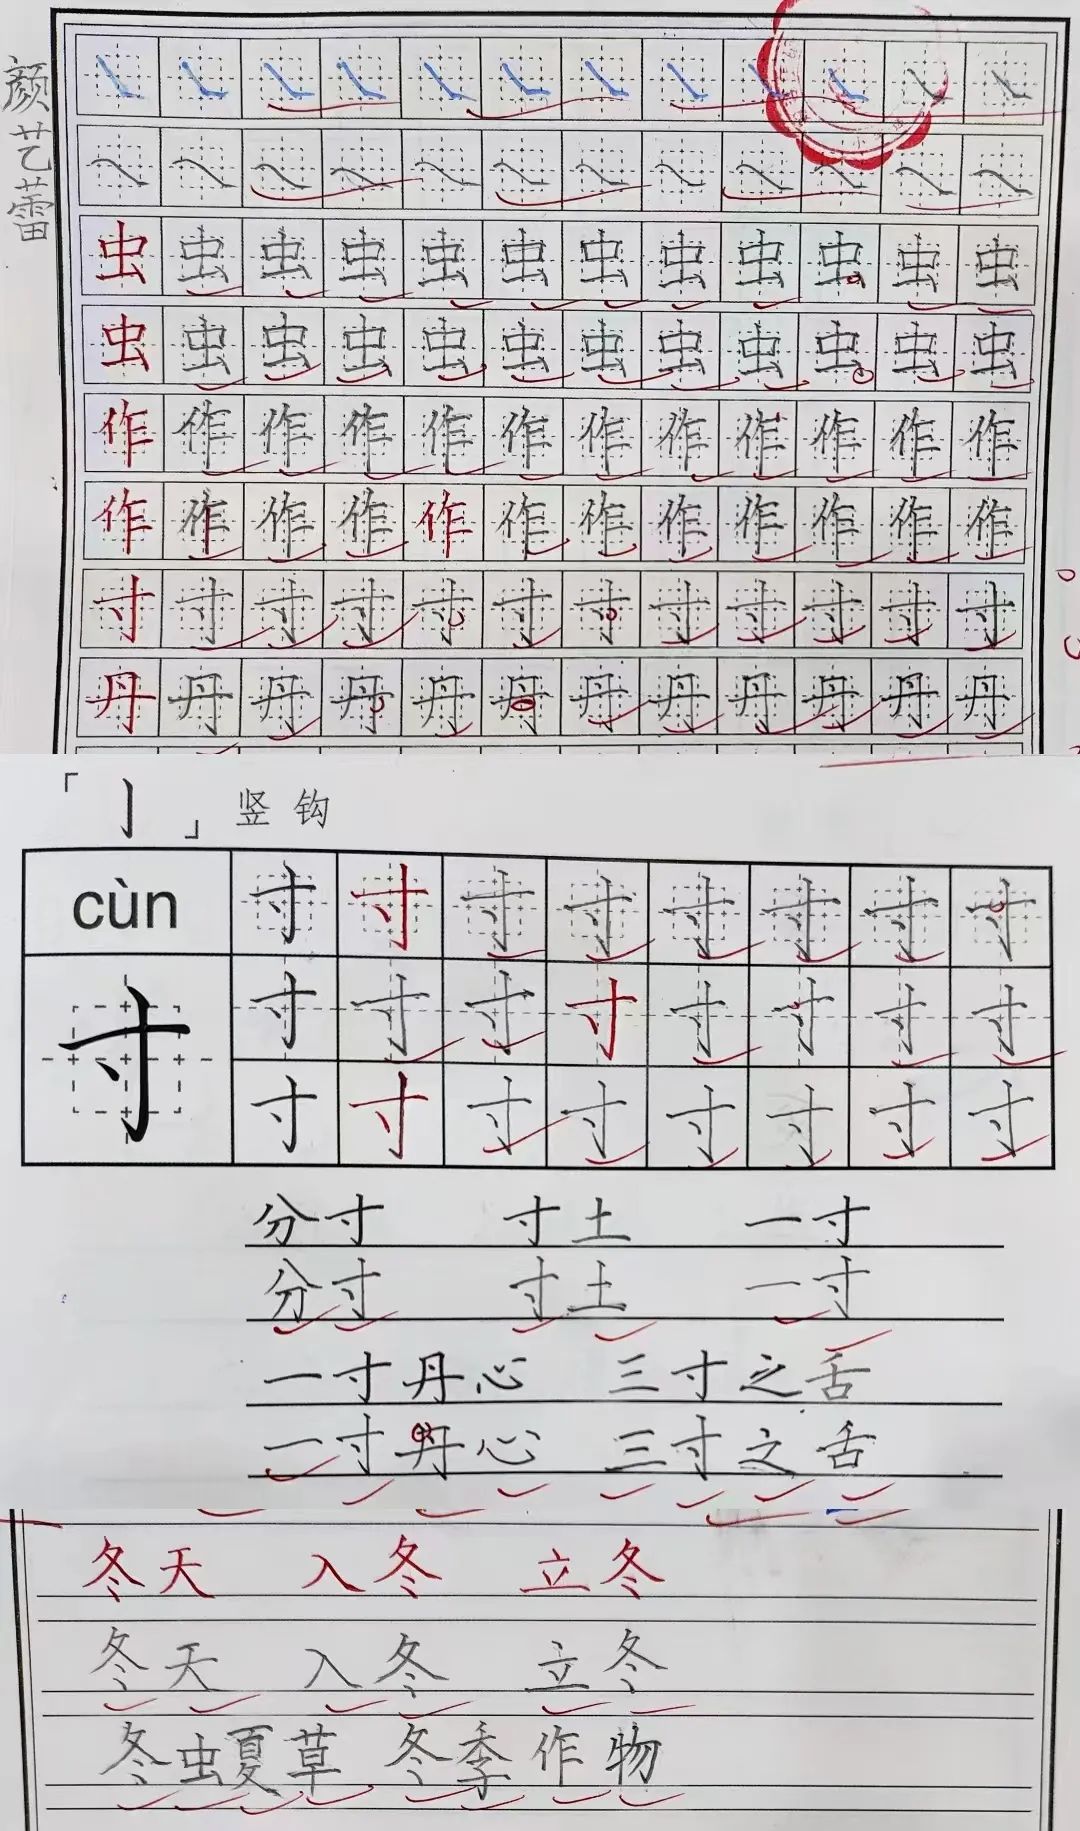 颜艺蕾
虫虫虫虫虫虫虫虫虫虫虫虫
虫虫虫虫虫虫虫虫虫虫虫虫
作作作作作作作作作作作作
作作作作作作作作作作作作
寸寸寸寸寸寸寸寸寸寸寸寸
丹丹丹丹丹丹丹丹丹丹丹丹
「亅」竖钩
cùn
寸
寸寸寸寸寸寸寸寸
寸寸寸寸寸寸寸寸
寸寸寸寸寸寸寸寸
分寸 寸土 一寸
分寸 寸土 一寸
一寸丹心 三寸之舌
一寸丹心 三寸之舌
冬天 入冬 立冬
冬天 入冬 立冬
冬虫夏草 冬季作物